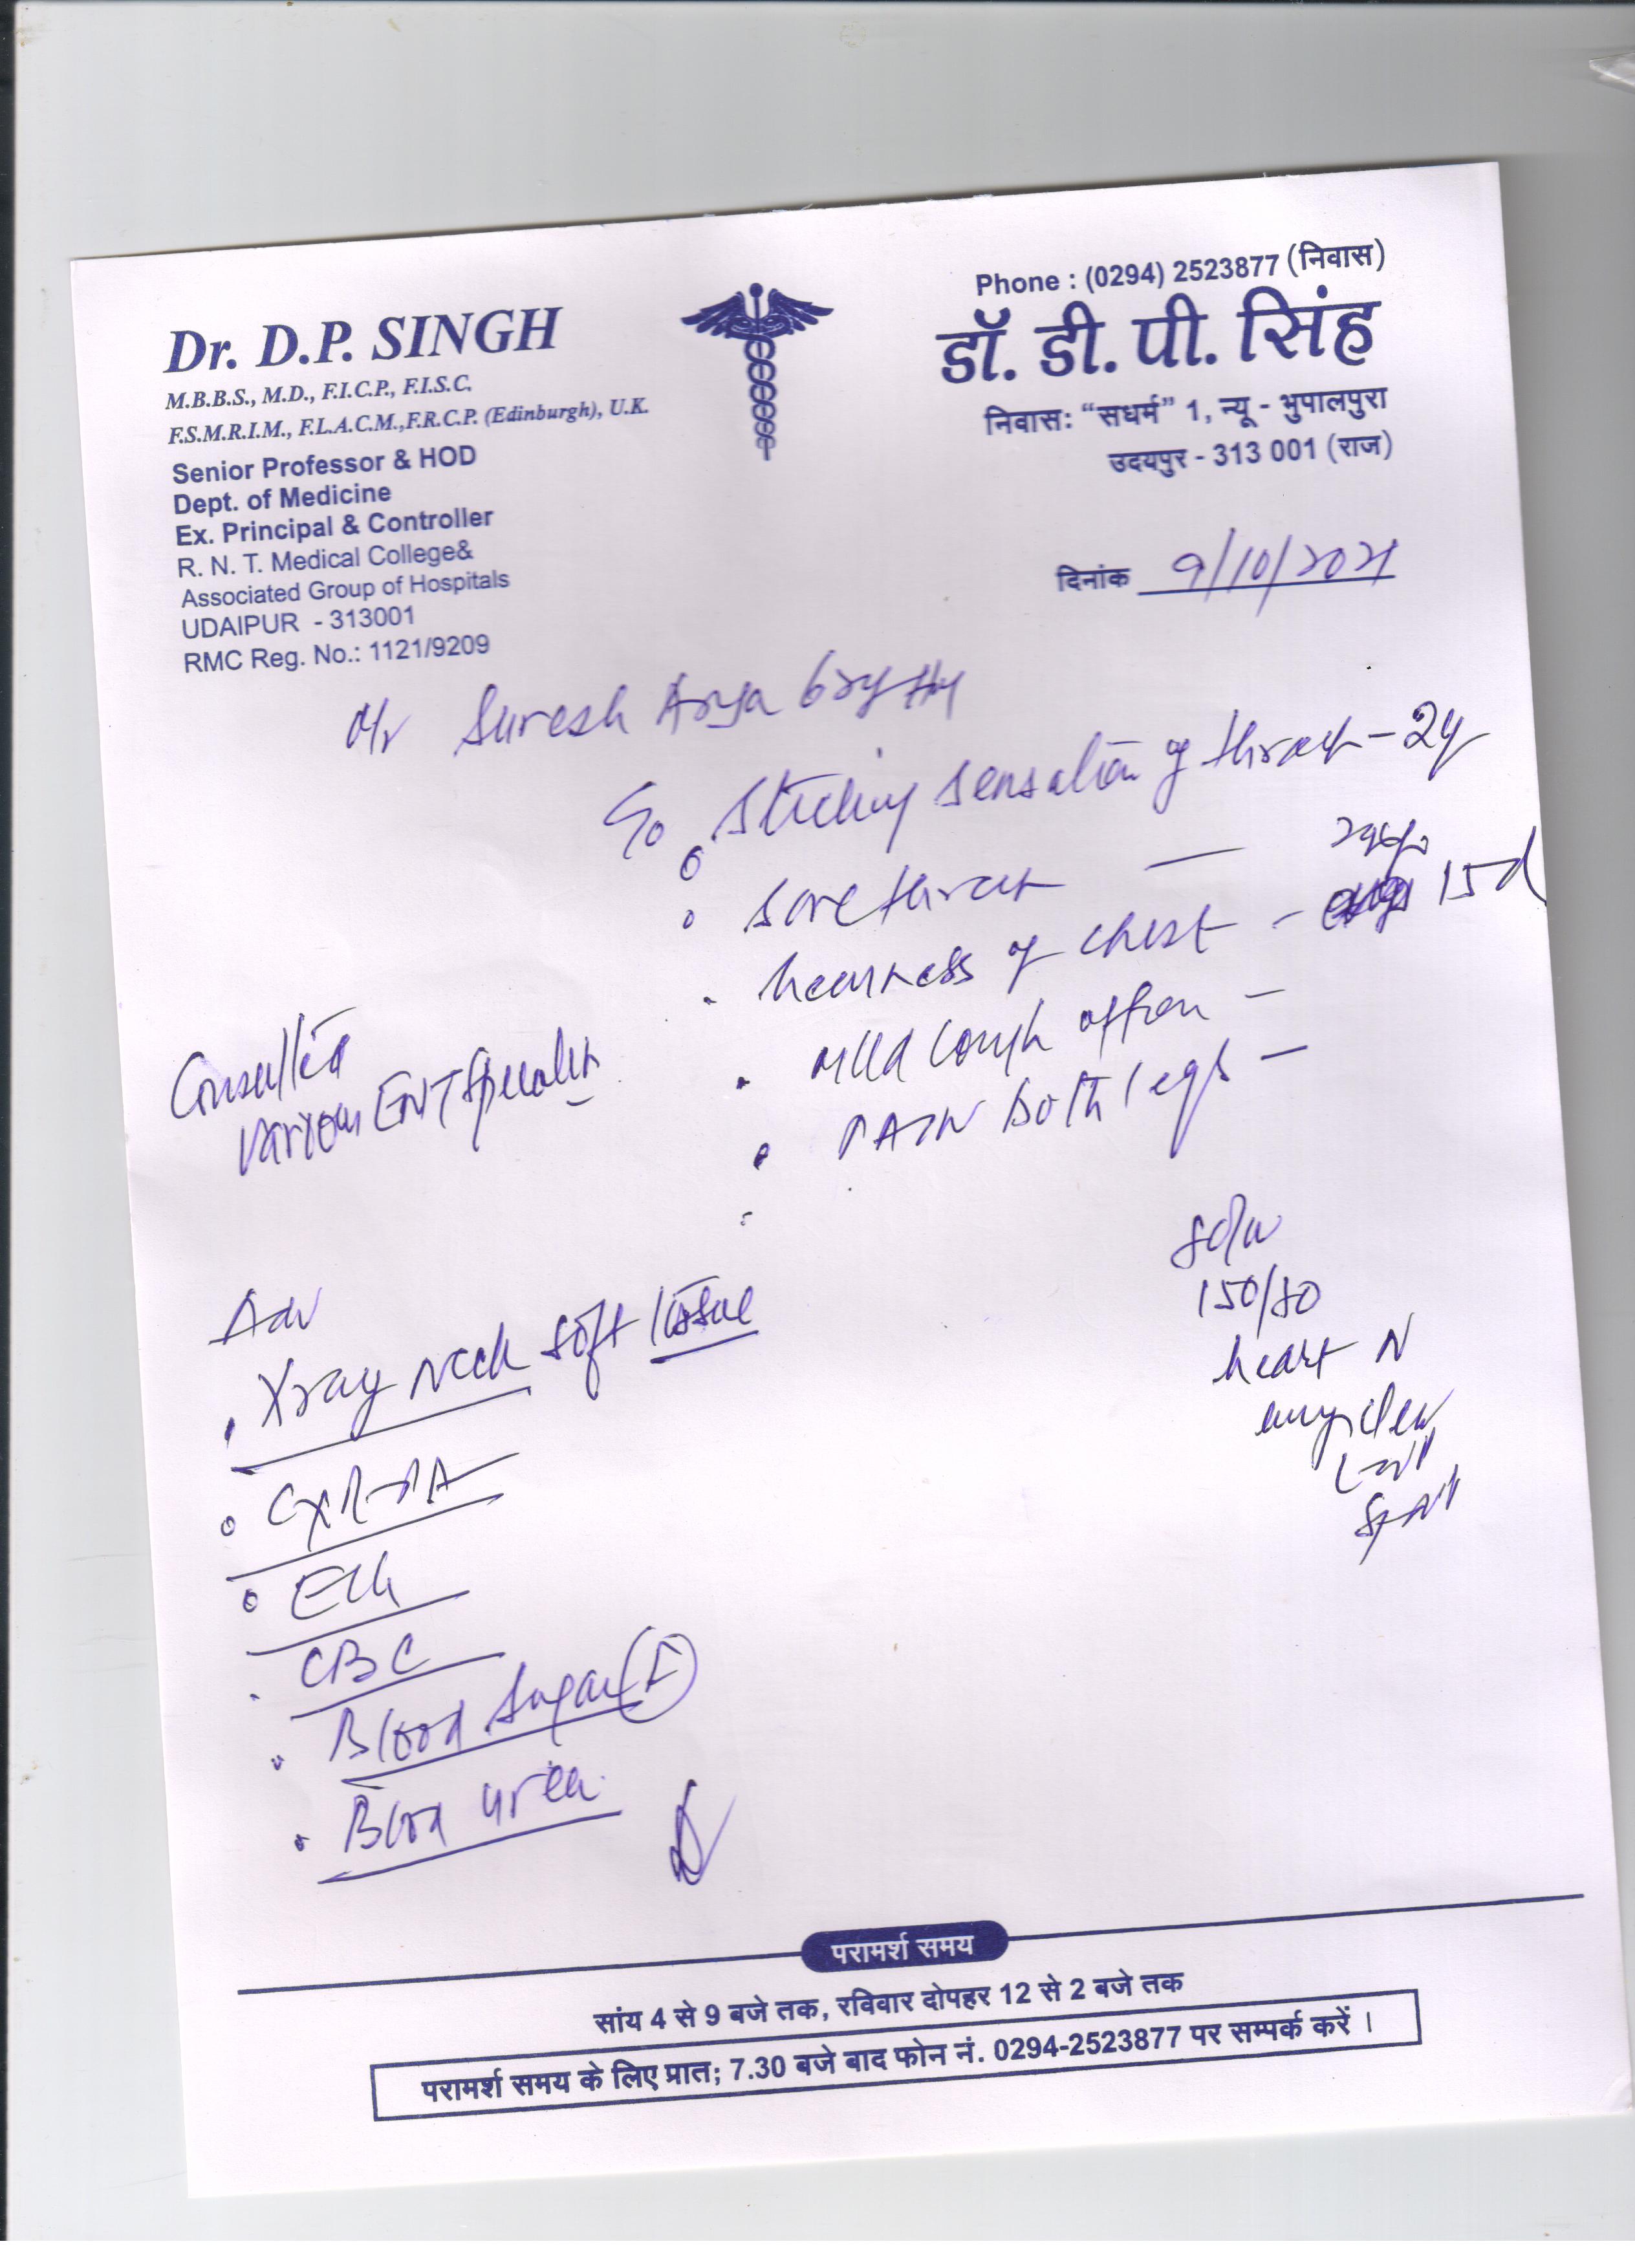 Phone : (0294) 2523877 (निवास)
Dr. D.P. SINGH
M.B.B.S., M.D., F.I.C.P., F.I.S.C,
F.S.M.R.I.M., F.L.A.C.M.,F.R.C.P. (Edinburgh), U.K.
Senior Professor & HOD
Dept. of Medicine
Ex. Principal & Controller
R. N. T. Medical College&
Associated Group of Hospitals
UDAIPUR - 313001
RMC Reg. No.: 1121/9209
डॉ. डी. पी. सिंह
निवास: “सधर्म” 1, न्यू - भुपालपुरा
उदयपुर - 313 001 (राज)
दिनांक 9/10/2021
Mr Suresh Arya
Sticking sensation of throat - 2y
Sore throat —
heaviness of chest - 15d
Mild cough often -
PAIN both legs -
Consulted
various ENT Specialist
150/80
heart N
Adv
Xray Neck soft tissue
CXR-PA
ECG
CBC
Blood Sugar (F)
Blood urea
परामर्श समय
सांय 4 से 9 बजे तक, रविवार दोपहर 12 से 2 बजे तक
परामर्श समय के लिए प्रात; 7.30 बजे बाद फोन नं. 0294-2523877 पर सम्पर्क करें ।